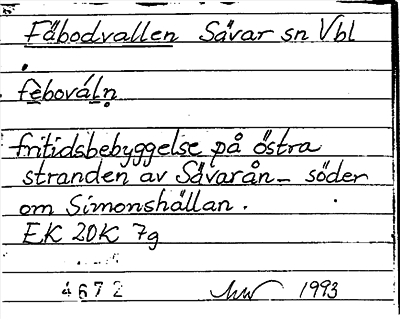 Fäbodvallen Sävar sn Vbl
fèbováln̥
fritidsbebyggelse på östra
stranden av Sävarån – söder
om Simonshällan.
EK 20K 7g
4672 1993